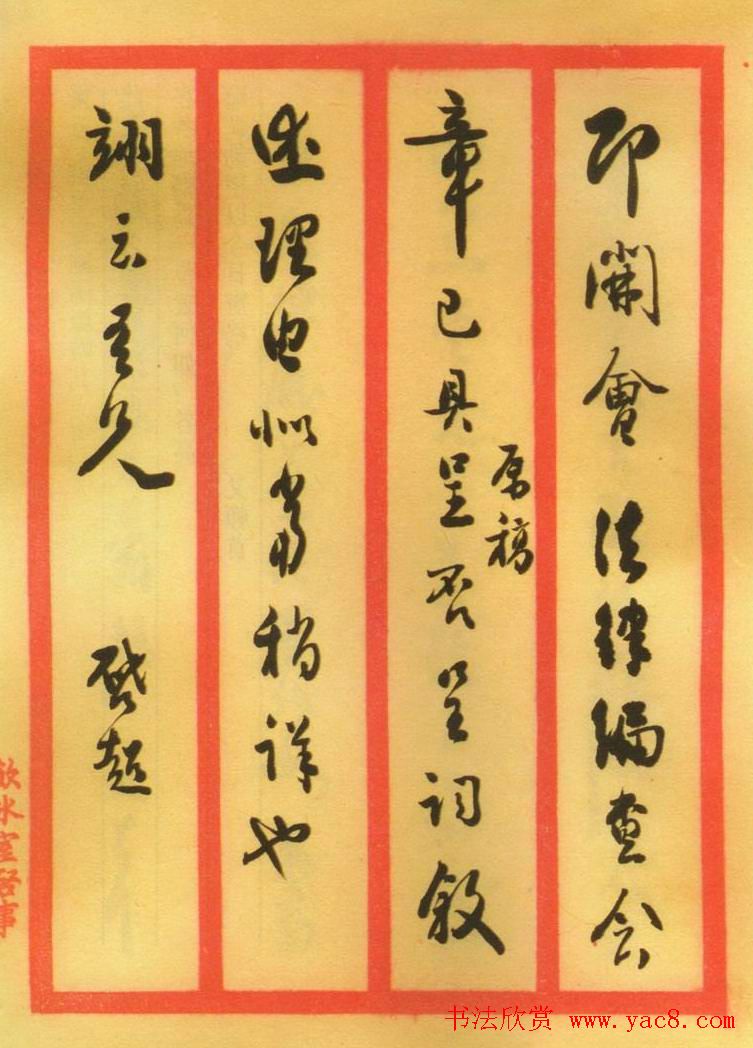 即開會 法律編查会
章已具呈否呈詞敘
原稿
述理由似當稍詳也
翊云吾兄 啓超
飲冰室啓事
书法欣赏 www.yac8.com